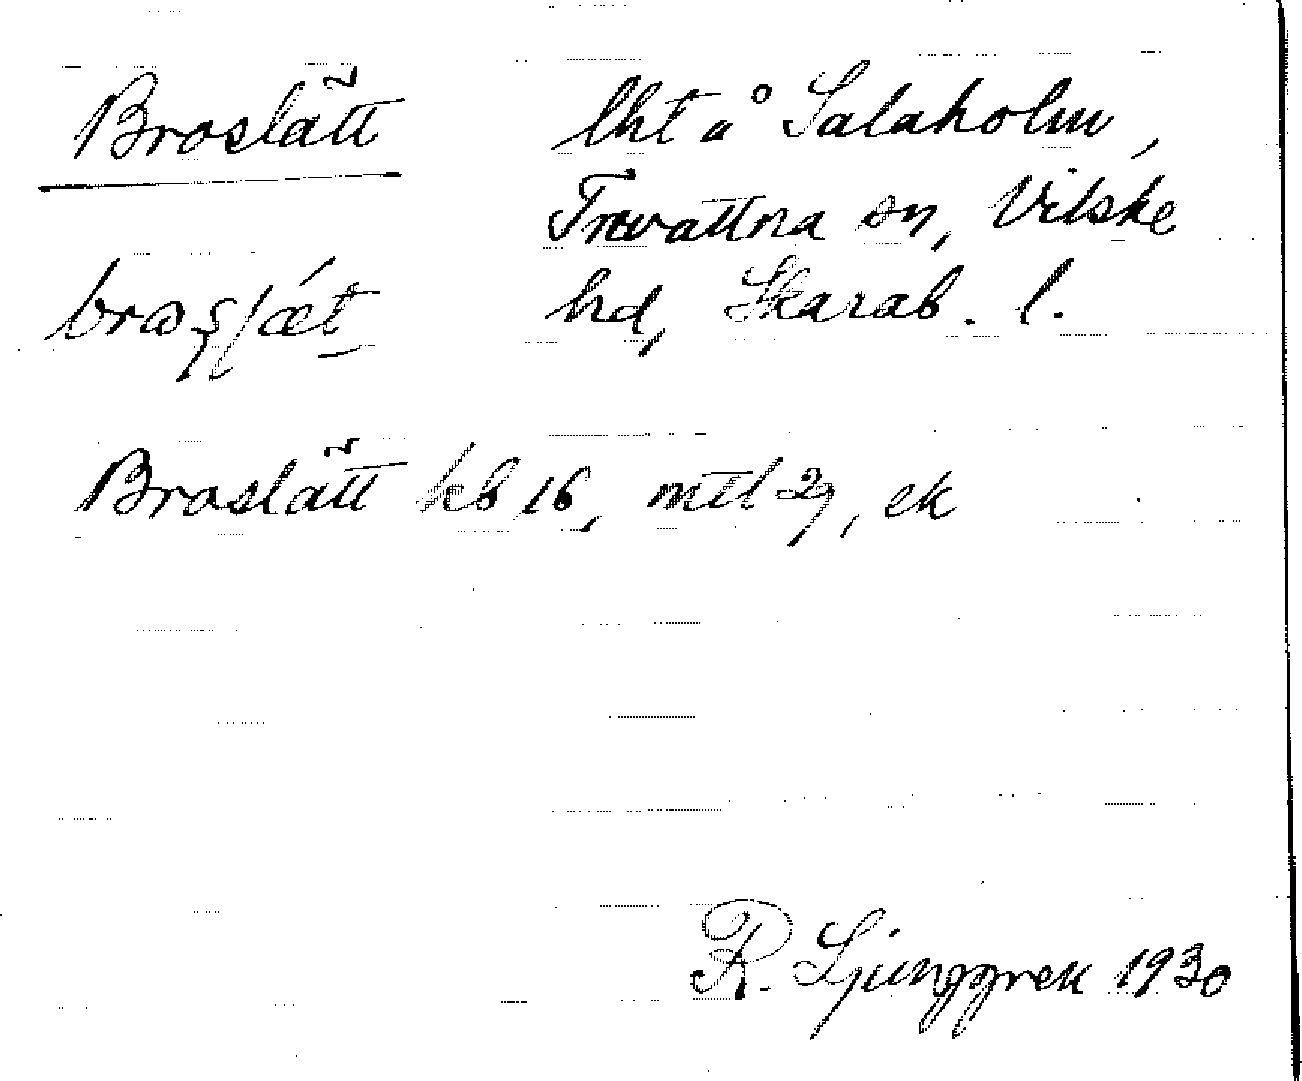 Broslätt lht å Salaholm,
Trävattna sn, Vilske
hd, Skarab. l.
Broslätt kb 16, mtl 29, ek
R. Ljunggren 1930